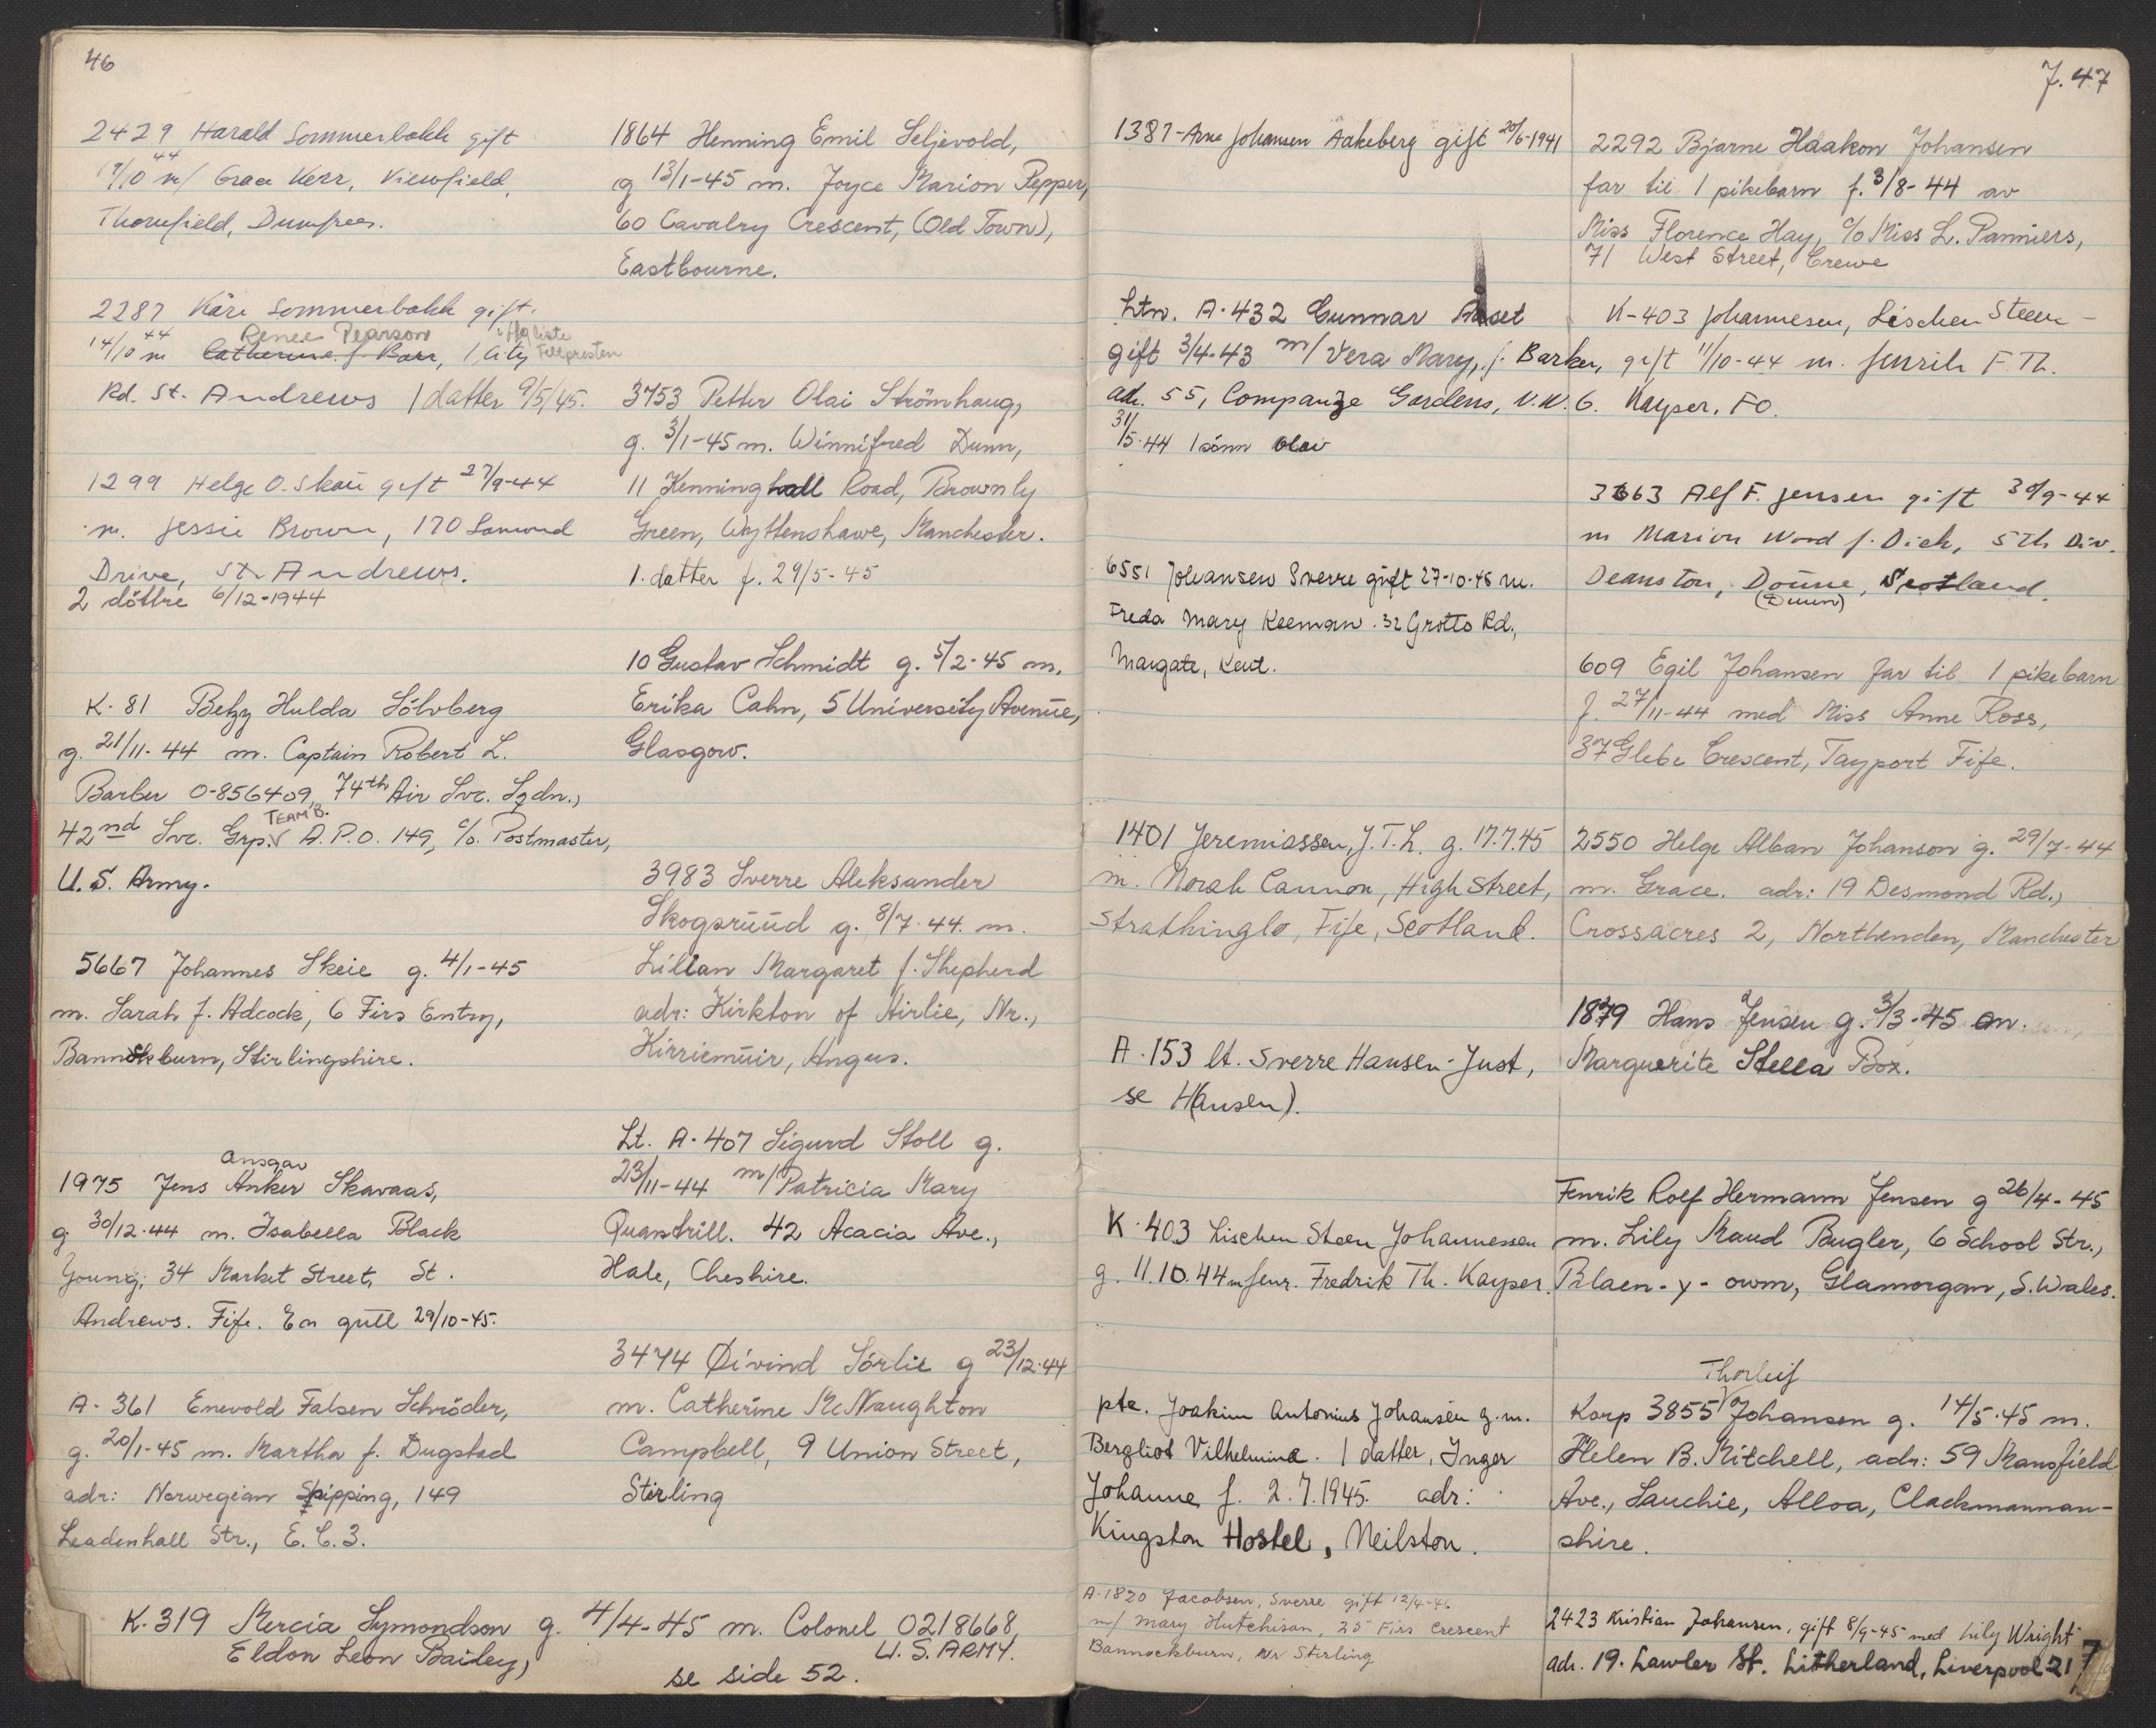 46
2429 Harald Sommerbakk gift
17/10 44 m/ Grace Kerr, Viewfield,
Thornfield, Dumfrees.
2287 Kåre Sommerbakk gift.
14/10 44 m Renee Pearson Catherine f. Barr, 1 City
Rd. St. Andrews 1 datter 9/5/45.
1299 Helge O. Skau gift 27/9-44
m. Jessie Brown, 170 Lamond
Drive, St. Andrews.
2 döttre 6/12-1944
K-81 Betzy Hulda Sölvberg
g. 21/11-44 m. Captain Robert L.
Barber 0-856409, 74th Air Svc. Sqdn.,
42nd Svc. Grp. TEAM B. A.P.O. 149, c/o. Postmaster,
U.S. Army.
5667 Johannes Skeie g. 4/1-45
m. Sarah f. Adcock, 6 Firs Entry,
Bannockburn, Stirlingshire.
1975 Jens Anker Ansgar Skavaas,
g. 30/12-44 m. Isabella Black
Young, 34 Market Street, St.
Andrews. Fife. En gutt 29/10-45.
A-361 Enevold Falsen Schröder,
g. 20/1-45 m. Martha f. Dugstad
adr: Norwegian Shipping, 149
Leadenhall Str., E.C.3.
K-319 Mercia Symondson g. 4/4-45 m. Colonel 0218668,
Eldon Leon Bailey, U.S. ARMY.
se side 52.
1864 Henning Emil Seljevold,
g 13/1-45 m. Joyce Marion Pepper,
60 Cavalry Crescent, (Old Town),
Eastbourne.
3753 Petter Olai Strömhaug,
g. 3/1-45 m. Winnifred Dunn,
11 Kenninghall Road, Brownly
Green, Wyttenshawe, Manchester.
1. datter f. 29/5-45
10 Gustav Schmidt g. 5/2-45 m.
Erika Cahn, 5 University Avenue,
Glasgow.
3983 Sverre Aleksander
Skogsruud g. 8/7-44. m.
Lillan Margaret f. Shepherd
adr: Kirkton of Airlie, Nr.,
Kirriemuir, Angus.
Lt. A-407 Sigurd Stoll g.
23/11-44 m/ Patricia Mary
Quantrill. 42 Acacia Ave.,
Hale, Cheshire.
3474 Øivind Sörlie g 23/12-44
m. Catherine McNaughton
Campbell, 9 Union Street,
Stirling
7.47
1387-Arne Johansen Aakeberg gift 20/6-1941
Ltn. A-432 Gunnar Aaset
gift 3/4-43 m/ Vera Mary, f. Barker,
adr. 55, Compayne Gardens, N.W.6.
31/5-44 1 sönn Olav
6551 Johansen Sverre gift 27-10-45 m.
Freda Mary Keeman. 32 Grotto Rd.,
Margate, Kent.
1401 Jeremiassen, J.T.L. g. 17.7.45
m. Norah Cannon, High Street,
Strathinglo, Fife, Scotland.
A-153 lt. Sverre Hansen-Just,
se H(ansen).
K-403 Lischen Steen Johannessen
g. 11.10.44 m fenr. Fredrik Th. Kayser.
pte. Joakim Antonius Johansen g.m.
Bergliot Vilhelmina. 1 datter, Inger
Johanne f. 2.7.1945. adr:
Kingston Hostel, Neilston.
A-1820 Jacobsen, Sverre gift 12/4-46
m/ Mary Hutchison, 25 Firs Crescent
Bannockburn, Nr Stirling
2292 Bjarne Haakon Johansen
far til 1 pikebarn f. 3/8-44 av
Miss Florence Hay, c/o Miss L. Panniers,
71 West Street, Crewe
K-403 Johannesen, Lischen Steen-
gift 11/10-44 m. fenrik F. Th.
Kayser. FO.
3663 Alf F. Jensen gift 30/9-44
m Marion Wood f. Dick, 5th Div.
Deanston, Doune, (Duun) Scotland.
609 Egil Johansen far til 1 pikebarn
f. 27/11-44 med Miss Anne Ross,
37 Glebe Crescent, Tayport Fife.
2550 Helge Alban Johanson g. 29/7-44
m. Grace. adr: 19 Desmond Rd.,
Crossacres 2, Northenden, Manchester
1879 Hans Jensen g. 3/3-45 m.
Marguerite Stella Box.
Fenrik Rolf Hermann Jensen g 26/4-45
m. Lily Maud Bugler, 6 School Str.,
Blaen-y-owm, Glamorgan, S. Wales.
Korp 3855 Thorleif Johansen g. 14/5-45 m.
Helen B. Mitchell, adr: 59 Mansfield
Ave., Sauchie, Alloa, Clackmannan-
shire.
2423 Kristian Johansen, gift 8/9-45 med Lily Wright
adr. 19. Lawler St. Litherland, Liverpool 21